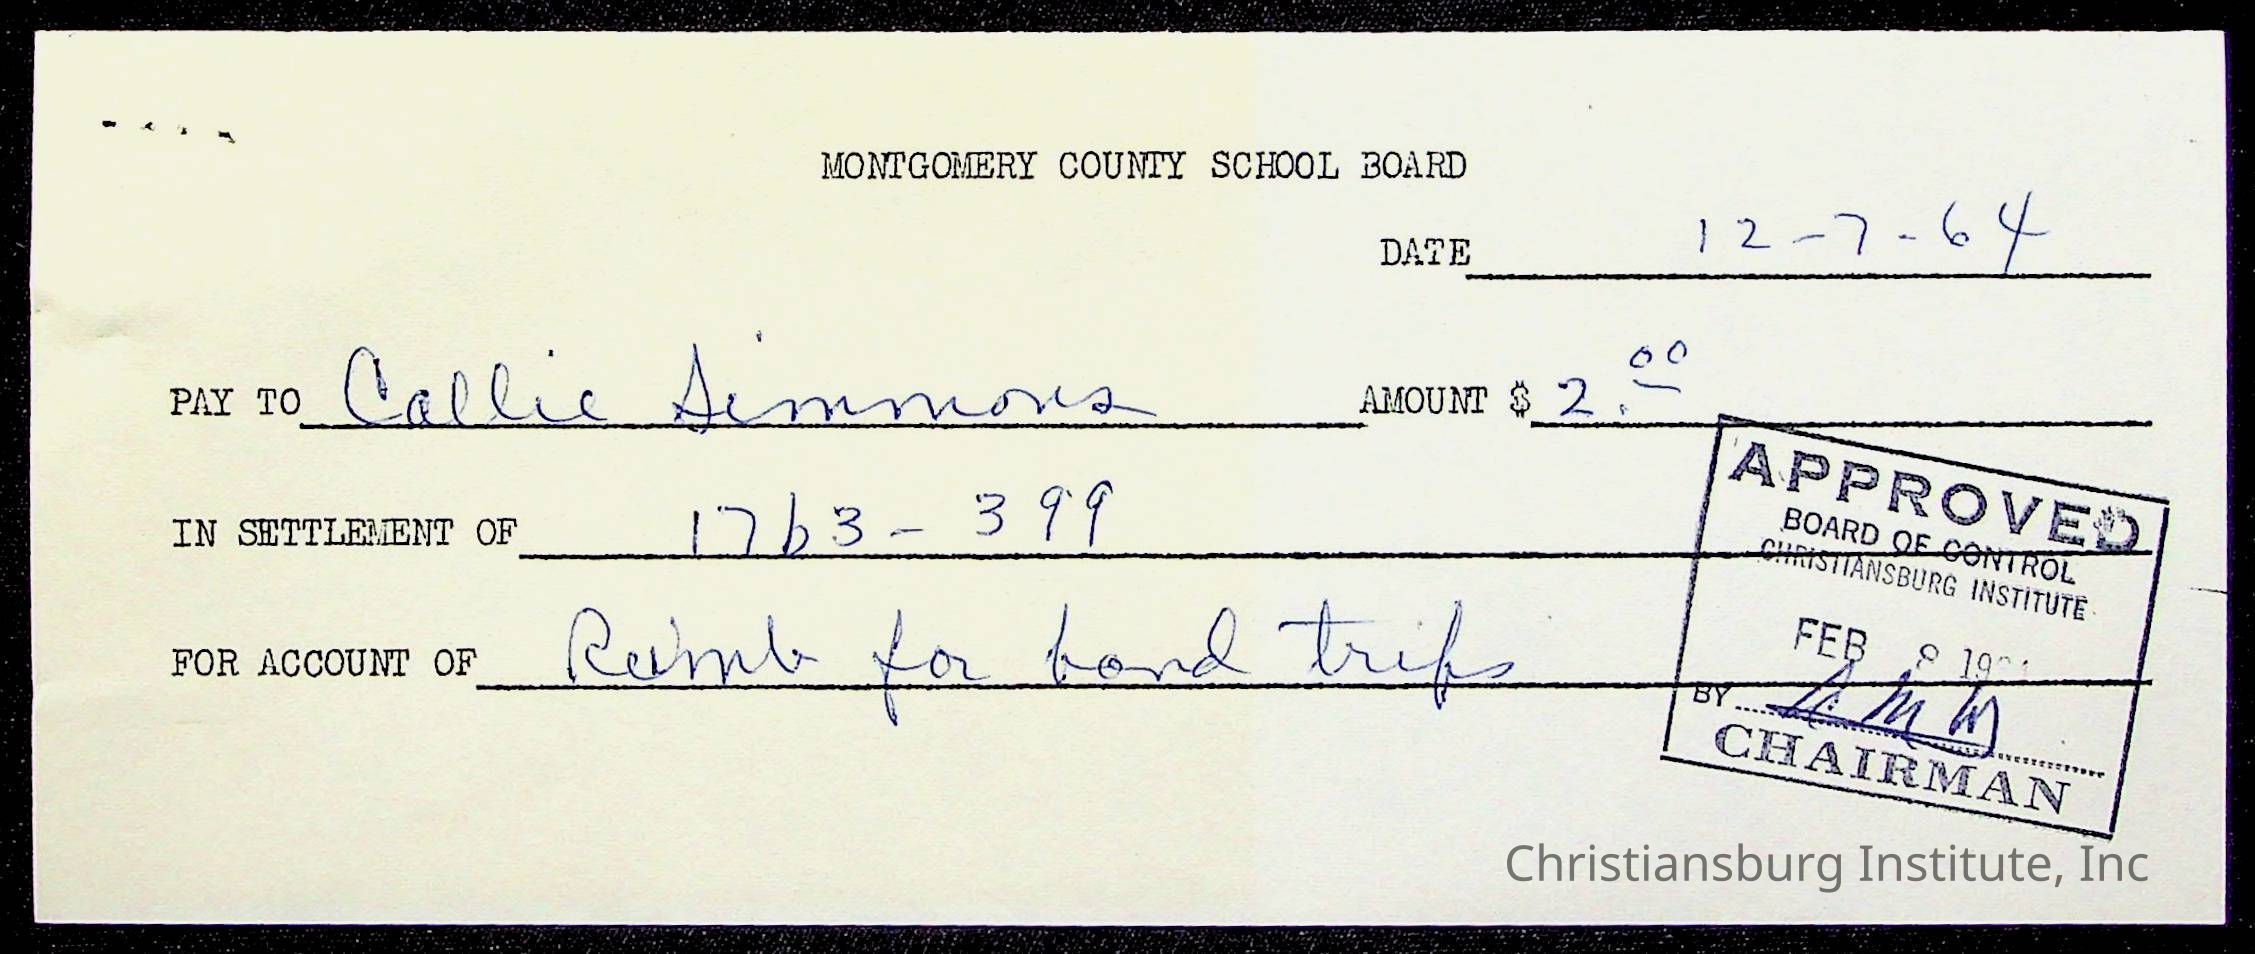 MONTGOMERY COUNTY SCHOOL BOARD
DATE 12-7-64
PAY TO Callie Simmons AMOUNT $ 2.00
IN SETTLEMENT OF 17b3-399
FOR ACCOUNT OF Reimb for band trips
APPROVED
BOARD OF CONTROL
CHRISTIANSBURG INSTITUTE
FEB 8
BY
CHAIRMAN
Christiansburg Institute, Inc